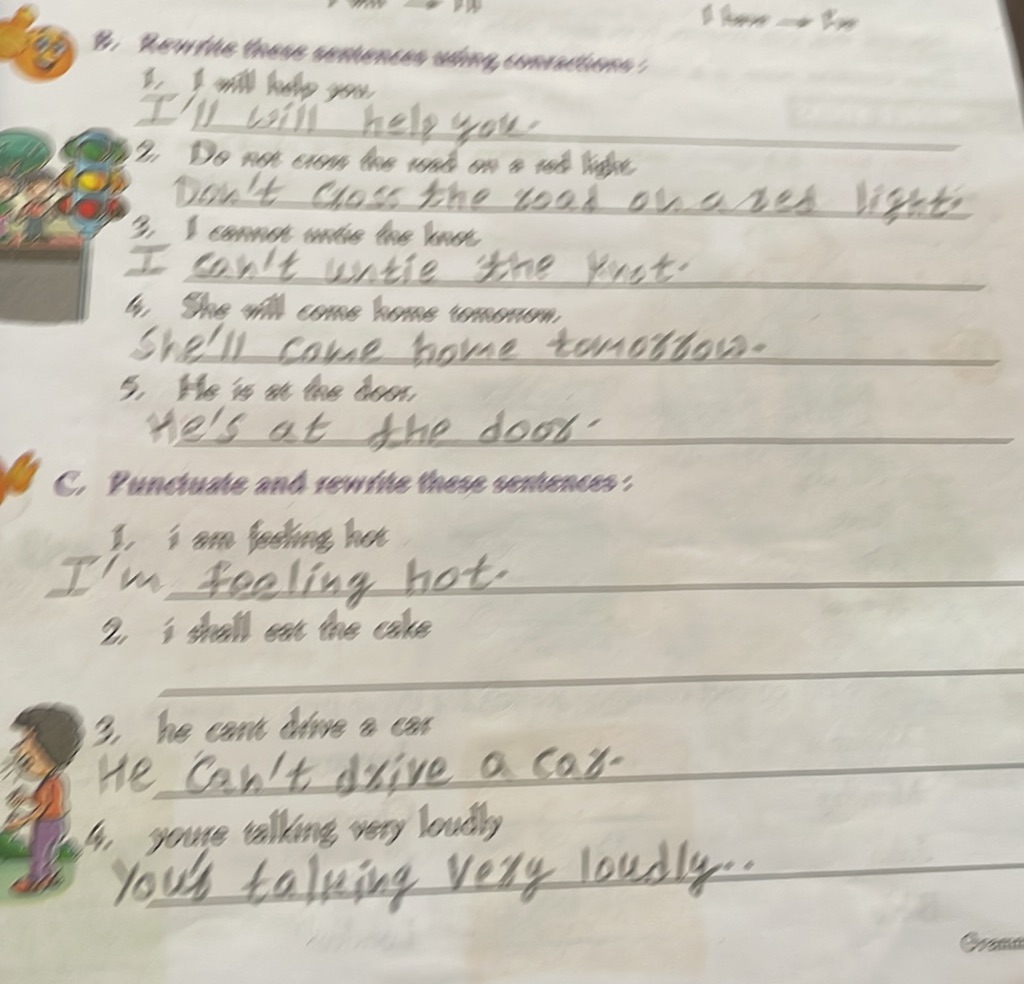 B. Rewrite these sentences using contractions :
1. I will help you.
I'll will help you.
2. Do not cross the road on a red light.
Don't cross the road on a red light.
3. I cannot untie the knot.
I can't untie the knot.
4. She will come home tomorrow.
She'll come home tomorrow.
5. He is at the door.
He's at the door.
C. Punctuate and rewrite these sentences :
1. i am feeling hot
I'm feeling hot.
2. i shall eat the cake
3. he cant drive a car
He can't drive a car.
4. youre talking very loudly
talking very loudly..